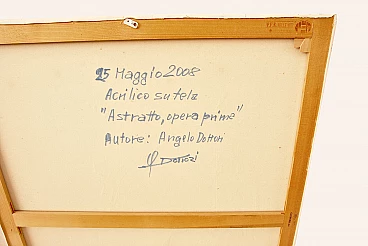 25 Maggio 2008
Acrilico su tela
"Astratto, opera prime"
Autore: Angelo Dottori
Dottori